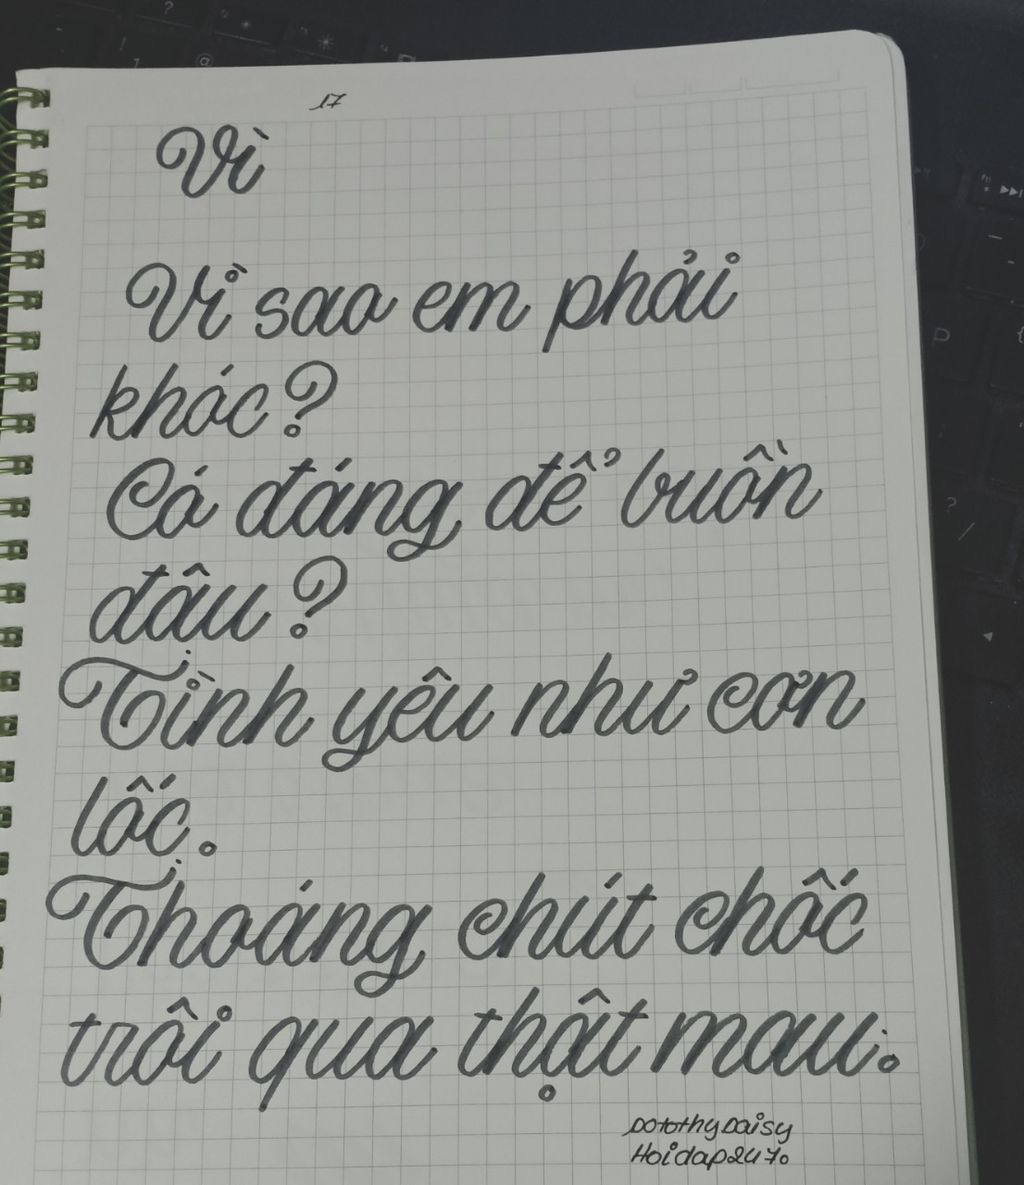 17
Vì
Vì sao em phải
khác?
Có đáng để buồn
đậu?
Tình yêu như cơn
lốc.
Thoáng chút chốc
trôi qua thật mau.
DorothyDaisy
Hoidap247.